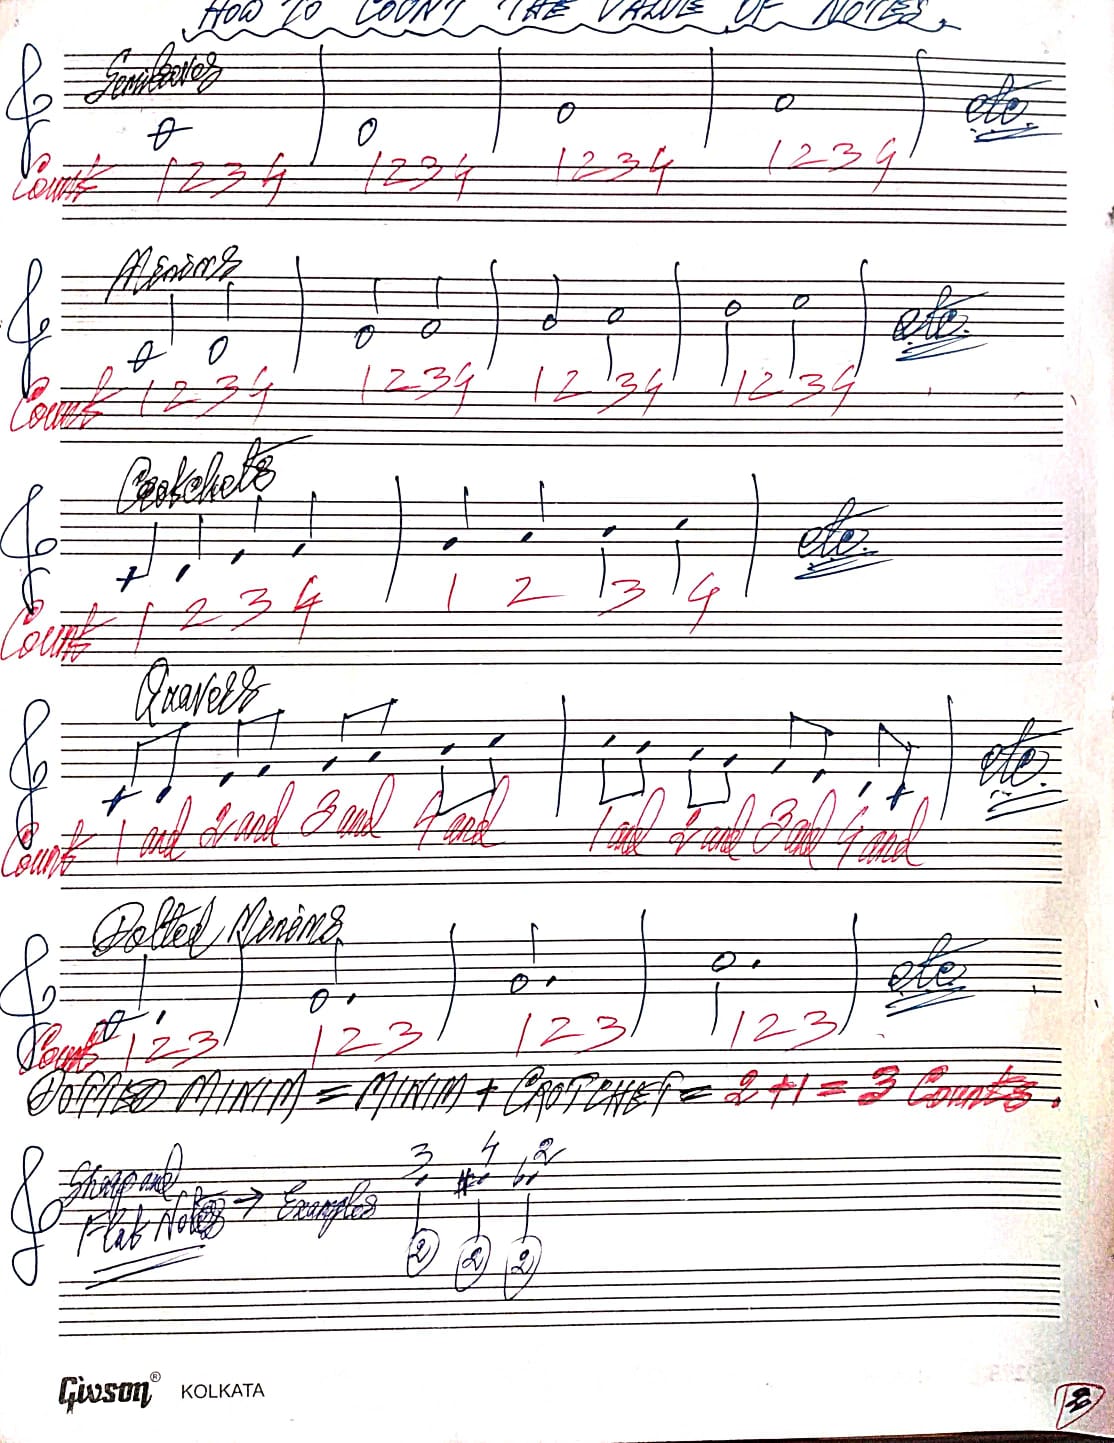 HOW TO COUNT THE VALUE OF NOTES.
Semibreves
etc.
Count 1 2 3 4 1 2 3 4 1 2 3 4 1 2 3 4
Minims
etc.
Count 1 2 3 4 1 2 3 4 1 2 3 4 1 2 3 4
Crotchets
etc.
Count 1 2 3 4 1 2 3 4
Quavers
etc.
Count 1 and 2 and 3 and 4 and 1 and 2 and 3 and 4 and
Dotted Minims
etc.
Count 1 2 3 1 2 3 1 2 3 1 2 3
DOTTED MINIM = MINIM + CROTCHET = 2+1 = 3 Counts.
3 4 2
Sharp and
Flat Notes → Examples
2 2 2
Givson® KOLKATA